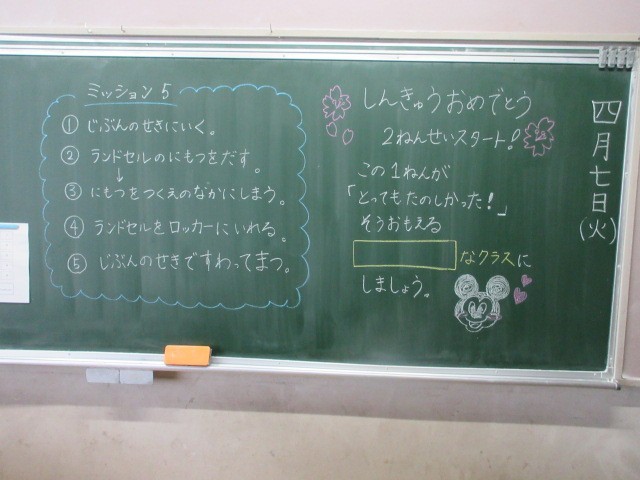 ミッション5
① じぶんのせきにいく。
② ランドセルのにもつをだす。
↓
③ にもつをつくえのなかにしまう。
④ ランドセルをロッカーにいれる。
⑤ じぶんのせきですわってまつ。
しんきゅうおめでとう
2ねんせいスタート!
この1ねんが
「とってもたのしかった!」
そうおもえる
なクラスに
しましょう。
四月七日(火)